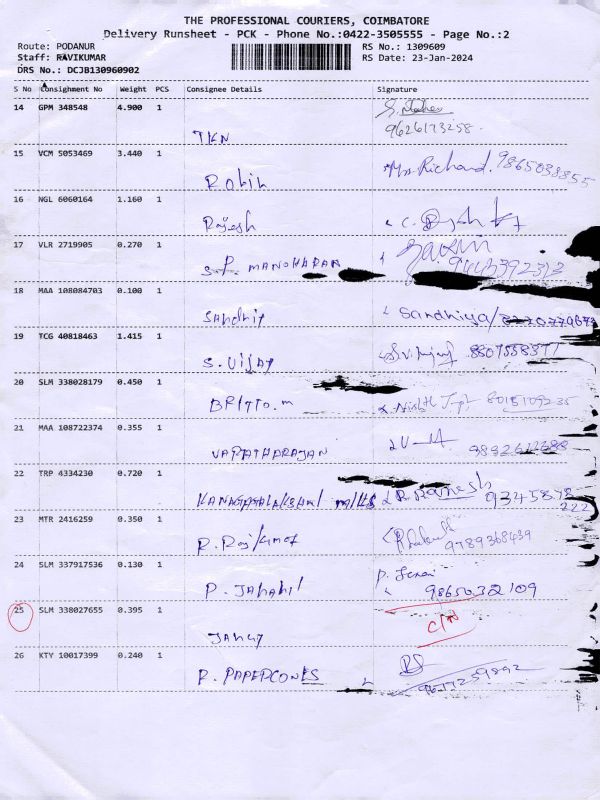 THE PROFESSIONAL COURIERS, COIMBATORE
Delivery Runsheet - PCK - Phone No.:0422-3505555 - Page No.:2
Route: PODANUR
RS No.: 1309609
Staff: RAVIKUMAR
RS Date: 23-Jan-2024
DRS No.: DCJB130960902
S No Consighment No Weight PCS Consignee Details Signature
14 GPM 348548 4.900 1
TKN
9626173258
15 VCM 5053469 3.440 1
Robin
Mrs. Richard. 9865038855
16 NGL 6060164 1.160 1
Rajesh
17 VLR 2719905 0.270 1
S.P. MANOHARAN
18 MAA 108084703 0.100 1
Sandhiya/
19 TCG 40818463 1.415 1
S. Vijay
20 SLM 338028179 0.450 1
BRITTO. M
21 MAA 108722374 0.355 1
VARATHARAJAN
22 TRP 4334230 0.720 1
R. Ramesh
23 MTR 2416259 0.350 1
R. Rajkumar
9789368439
24 SLM 337917536 0.130 1
P. Janahi
9865032109
25 SLM 338027655 0.395 1
C/N
26 KTY 10017399 0.240 1
R. PAPERCONES